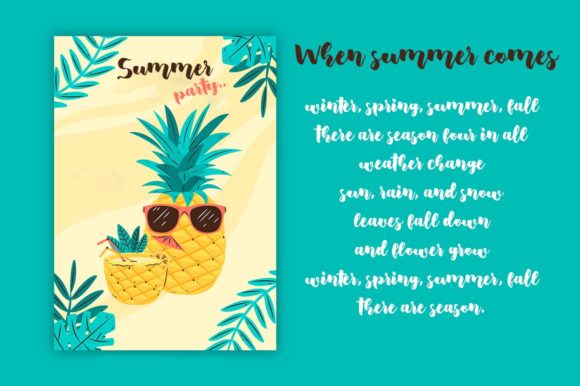 Summer
party..
When summer comes
winter, spring, summer, fall
there are season four in all
weather change
sun, rain, and snow
leaves fall down
and flower grow
winter, spring, summer, fall
there are season.